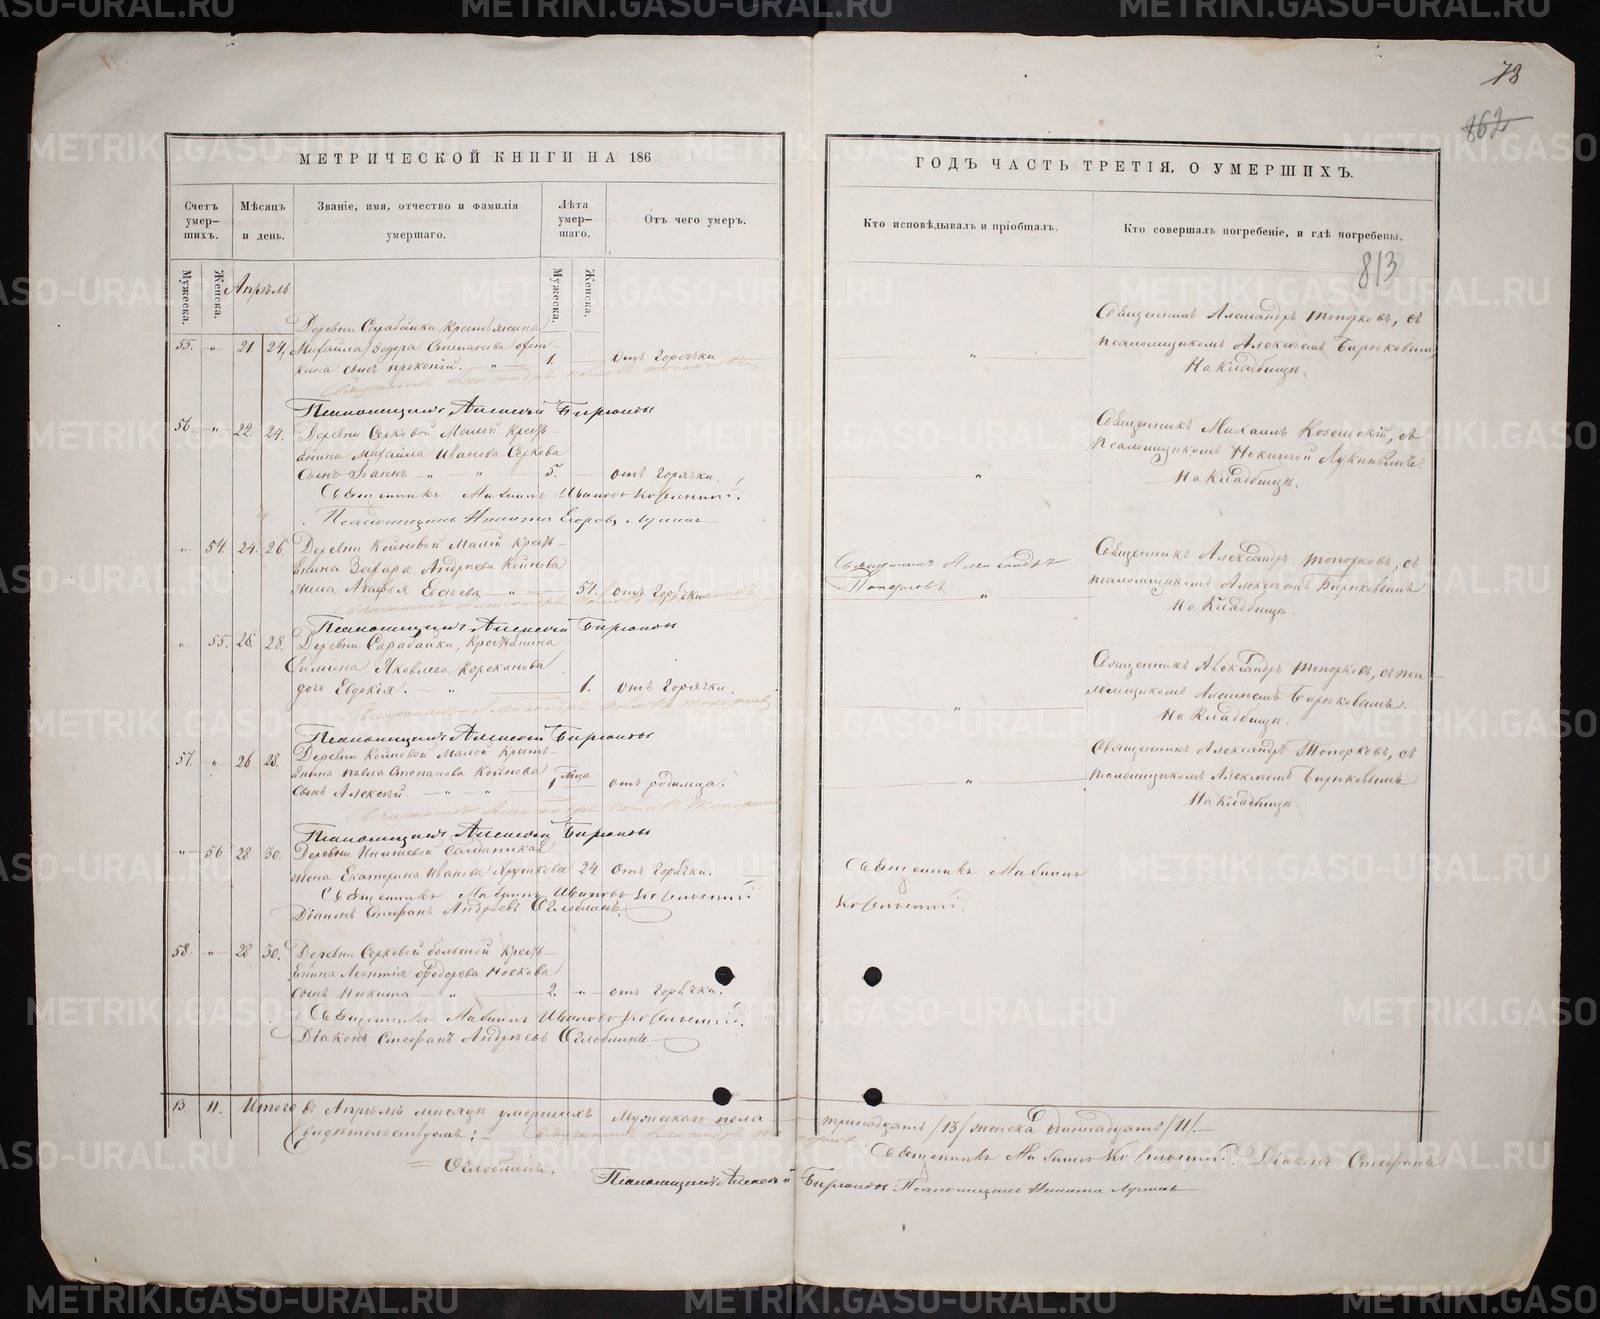 78
862
МЕТРИЧЕСКОЙ КНИГИ НА 186
ГОДЪ ЧАСТЬ ТРЕТІЯ, О УМЕРШИХЪ.
Счетъ умер-шихъ.
Мѣсяцъ и день.
Званіе, имя, отчество и фамилія умершаго.
Лѣта умер-шаго.
Отъ чего умеръ.
Кто исповѣдывалъ и пріобщалъ.
Кто совершалъ погребеніе, и гдѣ погребены.
Мужеска.
Женска.
Апрѣль
Мужеска.
Женска.
813
Деревни Сарабайки крестьянина
55. „ 21 24. Михаила Ѳедора Степанова
сынъ Прокопій. „ 1. отъ Горячки
Священникъ Александръ Топорковъ, съ
псаломщикомъ Алексѣемъ Бирюковымъ
На Кладбищѣ.
Псаломщикъ Алексѣй Бирюковъ
56. „ 22. 24. Деревни Серковой Малой кресть-
янина Михаила Иванова Серкова
Сынъ Іоаннъ „ „ 5. отъ Горячки.
Священникъ Михаилъ Козельскій, съ
псаломщикомъ Никитой Лукинымъ
На Кладбищѣ.
Священникъ Михаилъ Ивановъ Козельскій.
Псаломщикъ Никита Егоровъ Лукинъ
„ 54 24. 26. Деревни Койновой Малой кресть-
янина Захара Андреева Койнова
жена Агафья Евсѣева „ 54. отъ Горячки
Священникъ Александръ
Топорковъ.
Священникъ Александръ Топорковъ, съ
псаломщикомъ Алексѣемъ Бирюковымъ
На Кладбищѣ.
Псаломщикъ Алексѣй Бирюковъ
„ 55. 26. 28. Деревни Сарабайки, крестьянина
Яковлева Кореканова
дочь Евдокія. „ 1. отъ Горячки.
Священникъ Александръ Топорковъ, съ пса-
ломщикомъ Алексѣемъ Бирюковымъ.
На Кладбищѣ.
Псаломщикъ Алексѣй Бирюковъ
57. „ 26 28. Деревни Койновой Малой кресть-
янина Павла Степанова Койнова
сынъ Алексѣй. „ „ 1 мца отъ родимца.
Священникъ Александръ Топорковъ, съ
псаломщикомъ Алексѣемъ Бирюковымъ
На Кладбищѣ.
Псаломщикъ Алексѣй Бирюковъ
„ 56 28 30. Деревни Солдатская
жена Екатерина Иванова 24. отъ Горячки.
Священникъ Михаилъ
Козельскій.
Священникъ Михаилъ Ивановъ Козельскій
Діаконъ Стефанъ Андреевъ Оглоблинъ.
58. „ 28 30. Деревни Серковой большой кресть-
янина Леонтія Ѳедорова Носкова
сынъ Никита „ 2. „ отъ Горячки.
Священникъ Михаилъ Ивановъ Козельскій.
Діаконъ Стефанъ Андреевъ Оглоблинъ.
13. 11. Итого въ Апрѣлѣ мѣсяцѣ умершихъ Мужескаго пола тринадцать /13/ женска одиннадцать /11/.
Свидѣтельствуемъ: Священникъ Александръ
Священникъ Михаилъ Козельскій. Діаконъ Стефанъ
Оглоблинъ. Псаломщикъ Алексѣй Бирюковъ Псаломщикъ Никита Лукинъ
METRIKI.GASO-URAL.RU